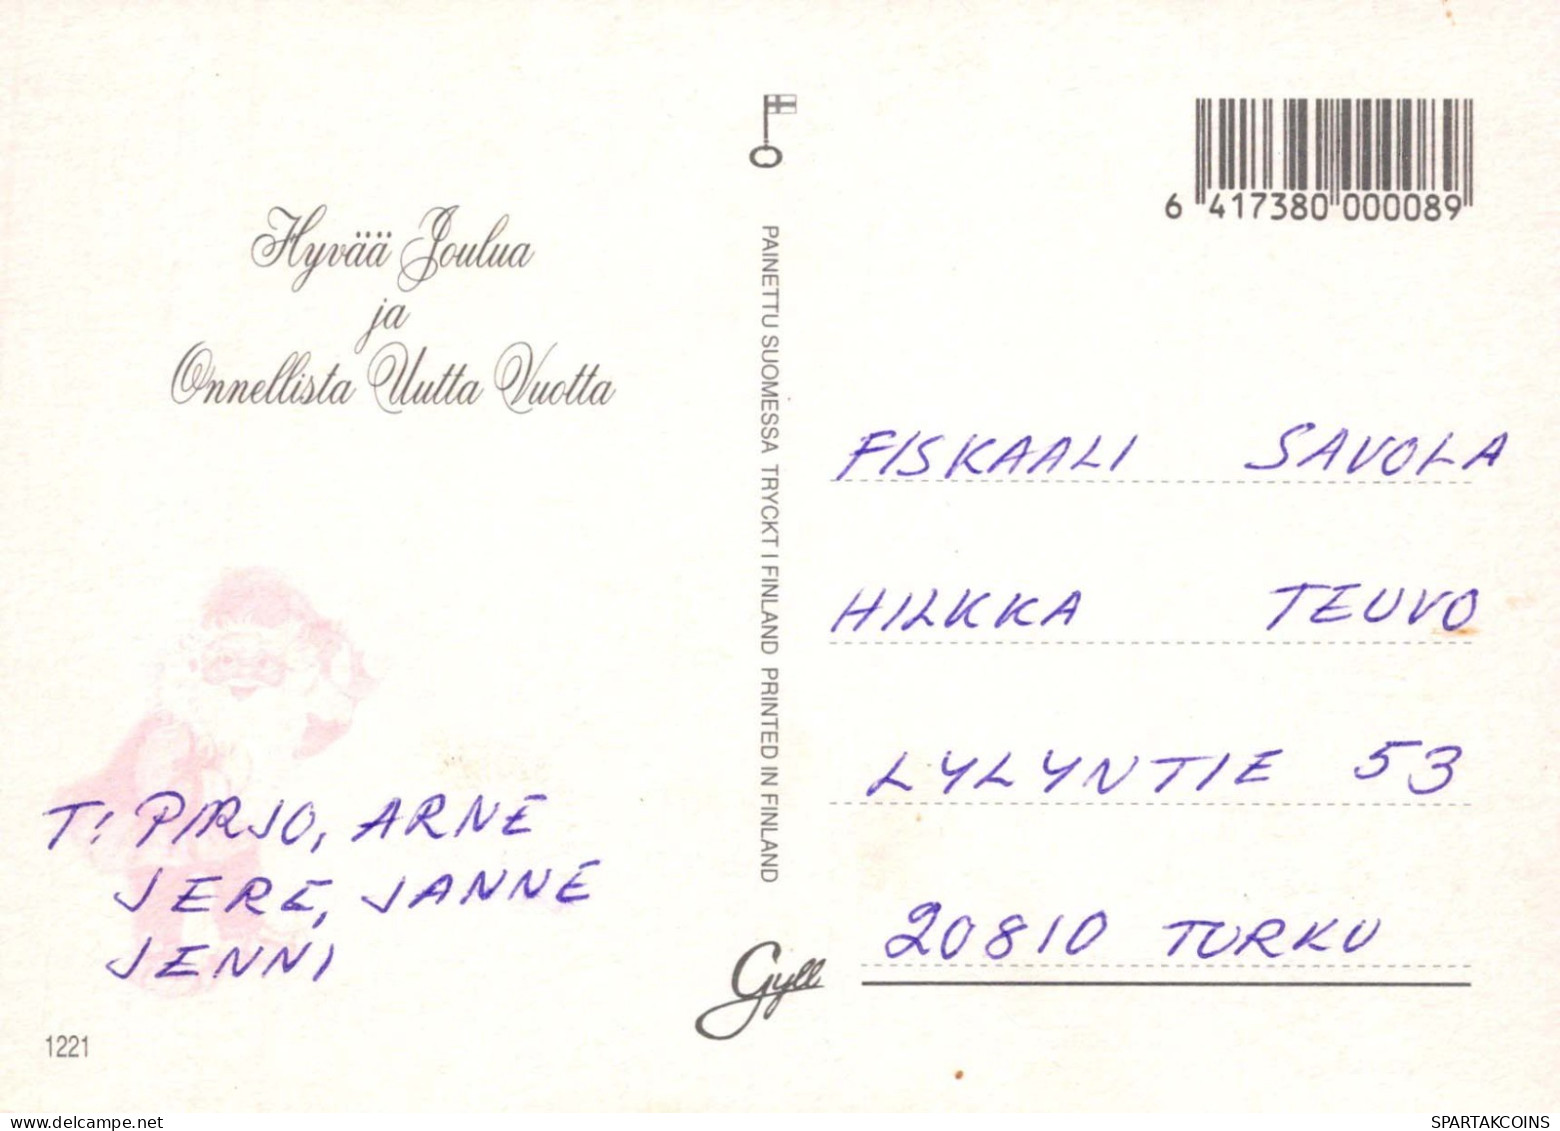 Hyvää Joulua
ja
Onnellista Uutta Vuotta
T: PIRJO, ARNE
JERE, JANNE
JENNI
1221
PAINETTU SUOMESSA TRYCKT I FINLAND PRINTED IN FINLAND
Gyll
6 417380 000089
FISKAALI SAVOLA
HILKKA TEUVO
LYLYNTIE 53
20810 TURKU
SPARTAKCOINS
delcampe.net